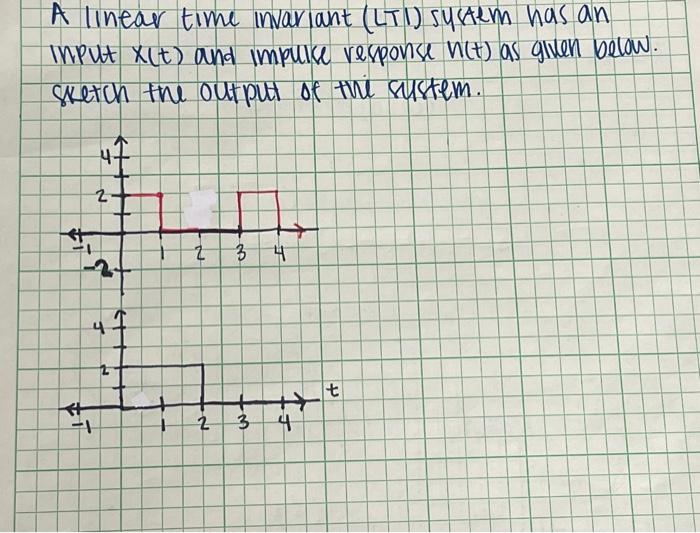 A linear time invariant (LTI) system has an
input x(t) and impulse response h(t) as given below.
sketch the output of the system.
4
2
-1 1 2 3 4
-2
4
2
t
-1 1 2 3 4